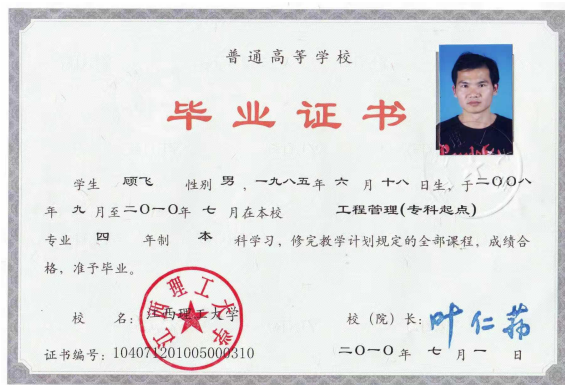 普通高等学校
毕业证书
学生 顾飞 性别 男，一九八五年 六 月 十八 日生，于二〇〇八
年 九 月至二〇一〇年 七 月在本校 工程管理(专科起点)
专业 四 年制 本 科学习，修完教学计划规定的全部课程，成绩合
格，准予毕业。
校 名：江西理工大学
江西理工大学
校（院）长：叶仁荪
证书编号：104071201005000310
二〇一〇 年 七 月 一 日